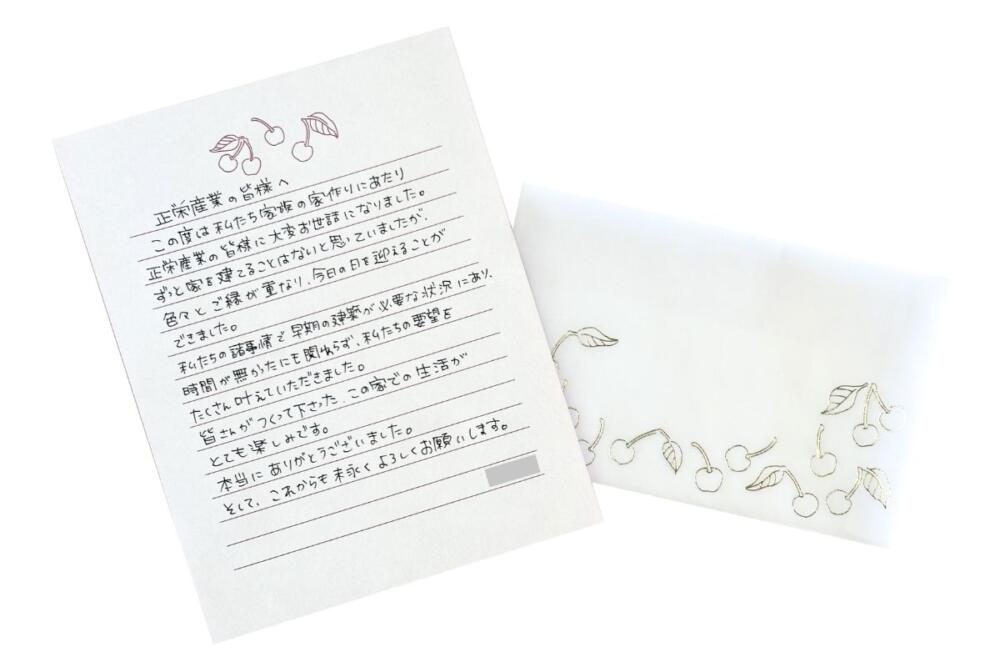 正栄産業の皆様へ
この度は私たち家族の家作りにあたり
正栄産業の皆様に大変お世話になりました。
ずっと家を建てることはないと思っていましたが、
色々とご縁が重なり、今日の日を迎えることが
できました。
私たちの諸事情で早期の建築が必要な状況にあり、
時間が無かったにも関わらず、私たちの要望を
たくさん叶えていただきました。
皆さんがつくって下さった、この家での生活が
とても楽しみです。
本当にありがとうございました。
そして、これからも末永くよろしくお願いします。